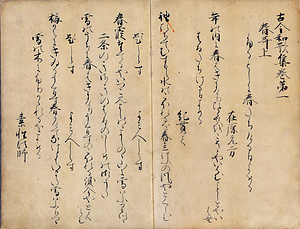 古今和歌集巻第一
春哥上
ふるとしに春たちける日よめる
在原元方
年の内に春はきにけりひとゝせをこそとやいはむことしとや
いはむ
はるたちける日よめる
紀貫之
袖ひちてむすひし水のこほれるを春立けふの風やとくらむ
題しらす よみ人しらす
春霞たてるやいつこみよしのゝよしのゝ山に雪はふりつゝ
二条のきさきのはるのはしめの御うた
雪の内に春はきにけりうくひすのこほれる涙今やとくらむ
題しらす よみ人しらす
梅かえにきゐるうくひす春かけてなけともいまた雪はふりつゝ
雪の木にふりかゝれるをよめる
素性法師